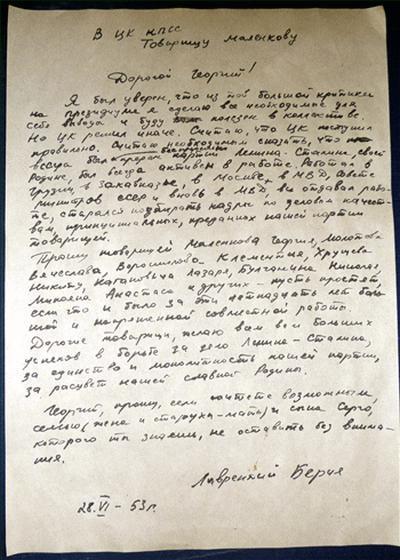 В ЦК КПСС
Товарищу Маленкову
Дорогой Георгий!
Я был уверен, что из той большой критики
на президиуме я сделаю все необходимые для
себя вывода и буду полезен в коллективе.
Но ЦК решил иначе. Считаю, что ЦК поступил
правильно. Считаю необходимым сказать, что
всегда был предан партии Ленина-Сталина, своей
Родине, был всегда активен в работе. Работал в
Грузии, в Закавказье, в Москве, в МВД, Совете
министров СССР и вновь в МВД, все отдавал рабо-
те, старался подбирать кадры по деловым качест-
вам, принципиальных, преданных нашей партии
товарищей.
Прошу товарищей Маленкова Георгия, Молотова
Вячеслава, Ворошилова Клементия, Хрущева
Никиту, Кагановича Лазаря, Булганина Николая,
Микояна Анастаса и других - пусть простят,
если что и было за эти пятнадцать лет боль-
шой и напряженной совместной работы.
Дорогие товарищи, желаю вам всем больших
успехов в борьбе за дело Ленина-Сталина,
за единство и монолитность нашей партии,
за расцвет нашей славной Родины.
Георгий, прошу, если сочтете возможным,
семью (жена и старуха-мать) и сына Серго,
которого ты знаешь, не оставить без внима-
ния.
Лаврентий Берия
28.VI - 53г.